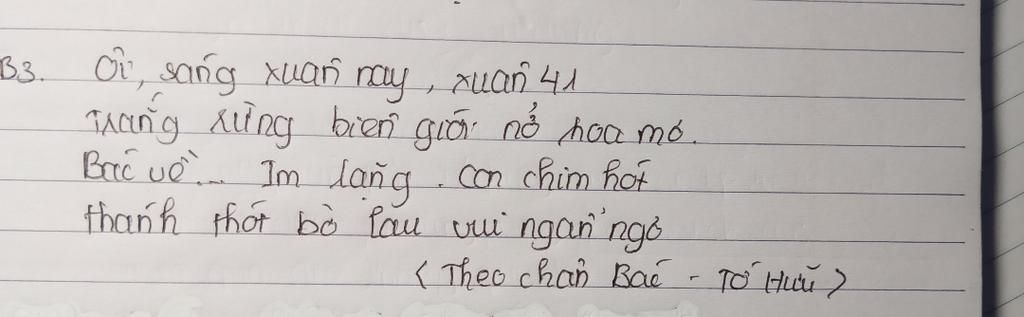 B3. Ôi, sáng xuân nay, xuân 41
Trắng rừng biên giới nở hoa mơ.
Bác về... Im lặng. Con chim hót
thánh thót bờ lau vui ngẩn ngơ
(Theo chân Bác - Tố Hữu)